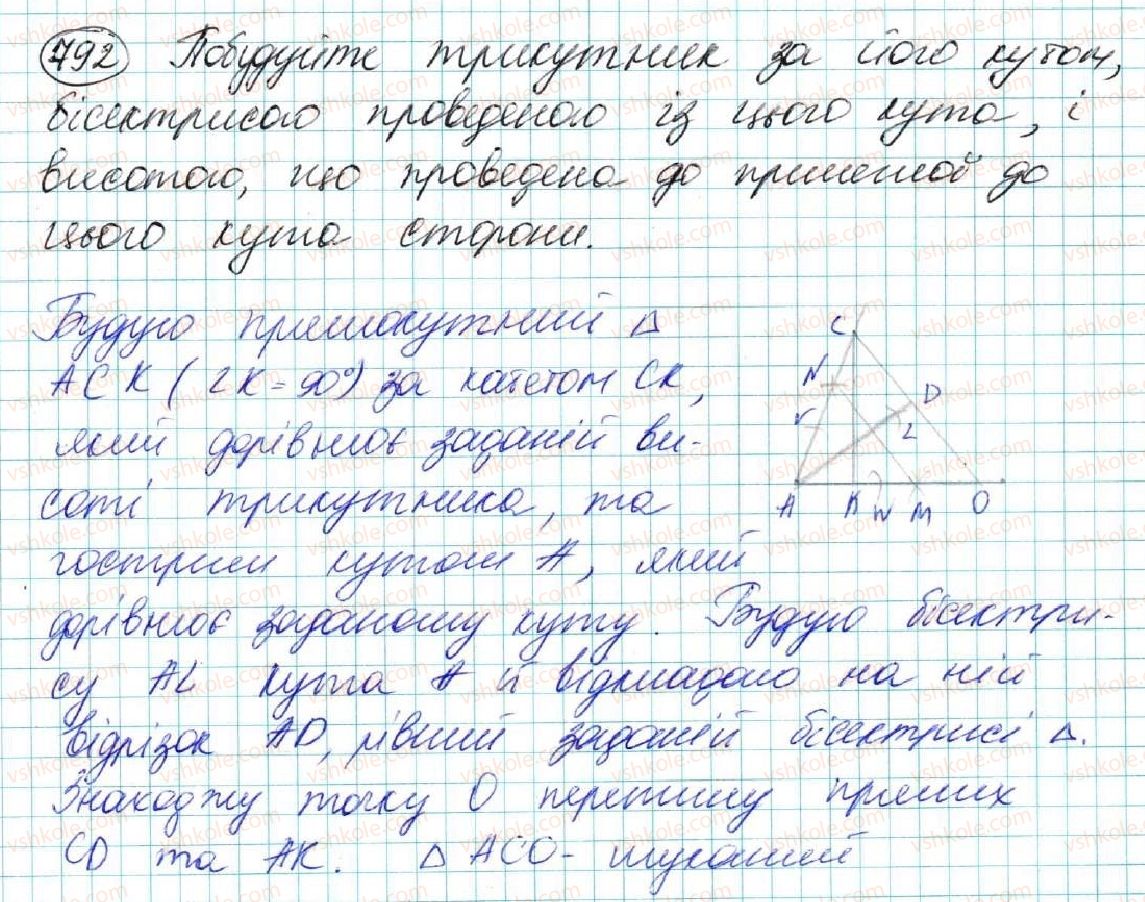 792 Побудуйте трикутник за його кутом,
бісектрисою проведеною із цього кута, і
висотою, що проведена до прилеглої до
цього кута сторони.
Будую прямокутний Δ
ACK (∠K=90°) за катетом CK,
який дорівнює заданій ви-
соті трикутника, та
гострим кутом A, який
дорівнює заданому куту. Будую бісектри-
су AL кута A й відкладаю на ній
відрізок AD, рівний заданій бісектрисі Δ.
Знаходжу точку O перетину прямих
CD та AK. Δ ACO - шуканий
C
N
D
V
L
A K W M O
vshkole.com